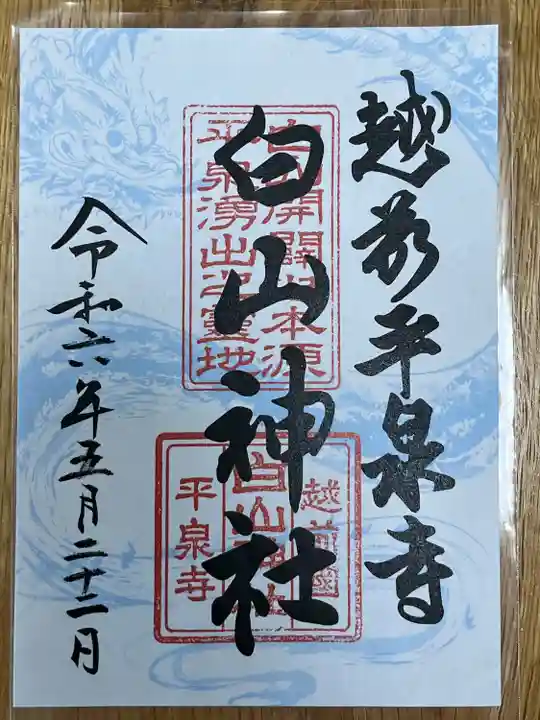 越前平泉寺
白山神社
令和六年五月二十二日
白山開闢日本源
平泉湧出之靈地
越前國
白山神社
平泉寺